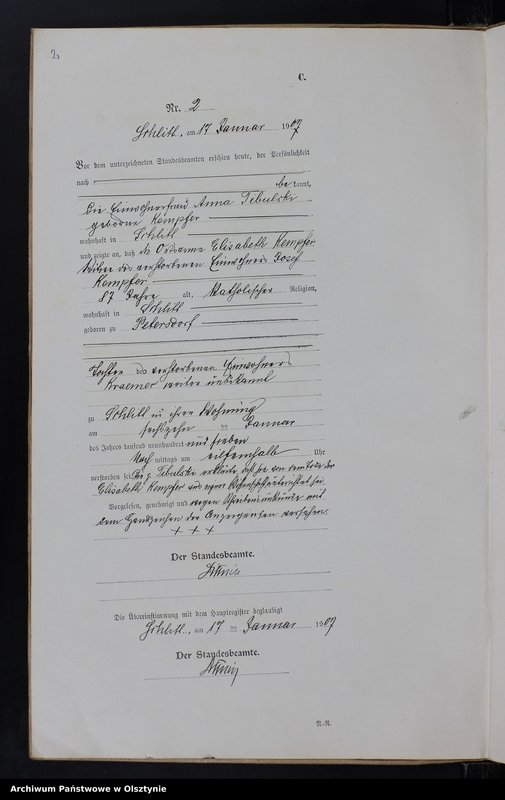 2
C.
Nr. 2
Schlitt, am 17 Januar 1907
Vor dem unterzeichneten Standesbeamten erschien heute, der Persönlichkeit
nach
be kannt,
die Einwohnerfrau Anna Tibulski
geborne Kempfer
wohnhaft in Schlitt
und zeigte an, daß die Ortsarme Elisabeth Kempfer
Witwe des verstorbenen Einwohners Josef
Kempfer
87 Jahre alt, katholischer Religion,
wohnhaft in Schlitt
geboren zu Petersdorf
Tochter des verstorbenen Einwohners
Kraemer weiter unbekannt
zu Schlitt in ihrer Wohnung
am sechszehn ten Januar
des Jahres tausend neunhundert und sieben
Nach mittags um elfeinhalb Uhr
verstorben sei. Die p. Tibulski erklärte, daß sie von dem Tode der
Elisabeth Kempfer aus eigener Wissenschaft unterrichtet sei
Vorgelesen, genehmigt und wegen Schreibensunkunde mit
dem Handzeichen der Anzeigenden versehen.
+ + +
Der Standesbeamte.
Die Übereinstimmung mit dem Hauptregister beglaubigt
Schlitt, am 17 ten Januar 1907
Der Standesbeamte.
N.-N.
Archiwum Państwowe w Olsztynie